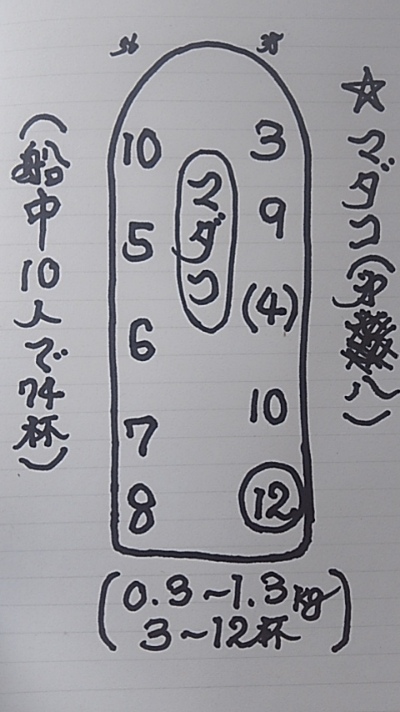 ☆マダコ(第八)
マダコ
10
5
6
7
8
3
9
(4)
10
12
(船中10人で74杯)
(0.3～1.3kg
3～12杯)